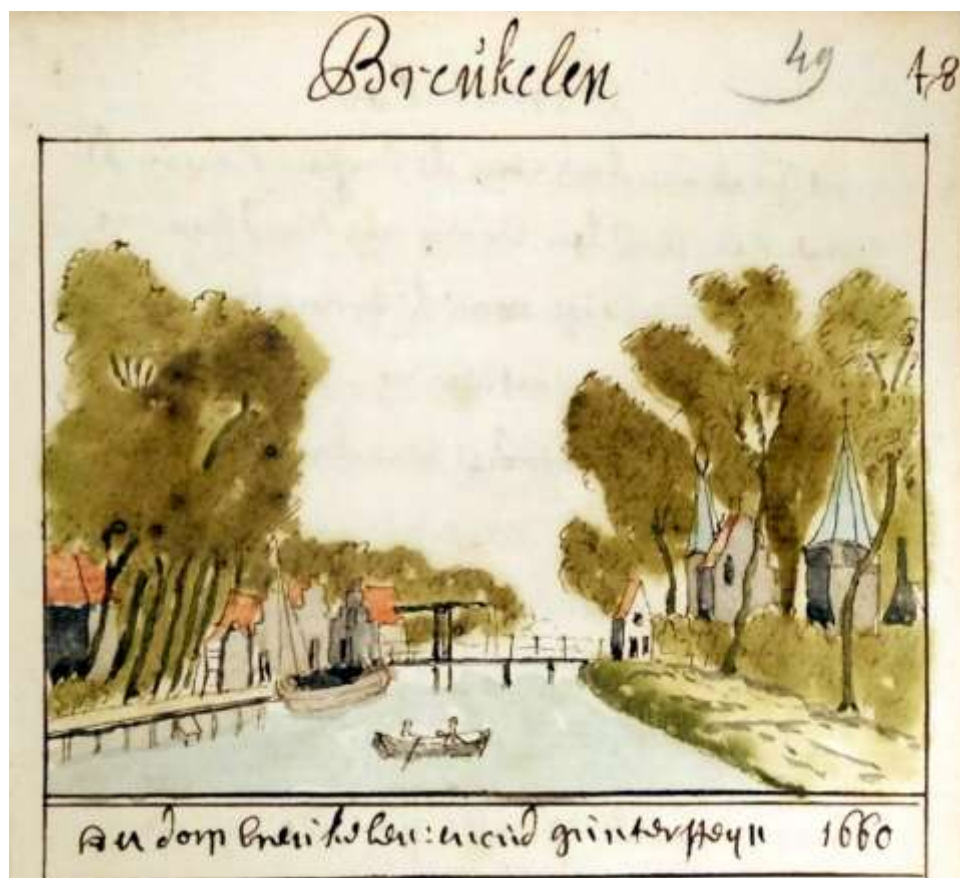 Breukelen 49 48
Het dorp breukelen: en oud guntersteyn 1660